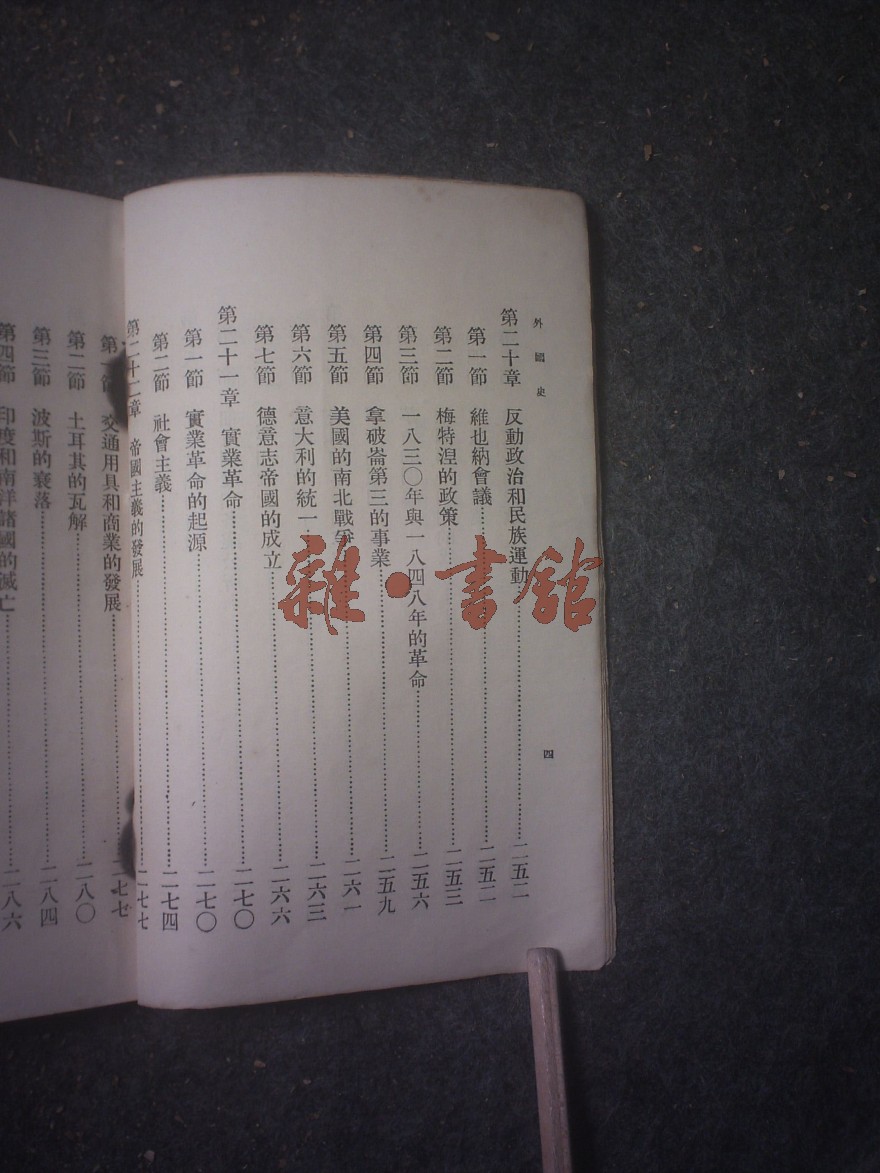 外國史
四
第二十章 反動政治和民族運動……二五二
第一節 維也納會議……二五二
第二節 梅特涅的政策……二五三
第三節 一八三〇年與一八四八年的革命……二五六
第四節 拿破崙第三的事業……二五九
第五節 美國的南北戰爭……二六一
第六節 意大利的統一……二六三
第七節 德意志帝國的成立……二六六
第二十一章 實業革命……二七〇
第一節 實業革命的起源……二七〇
第二節 社會主義……二七四
第二十二章 帝國主義的發展……二七七
第一節 交通用具和商業的發展……二七七
第二節 土耳其的瓦解……二八〇
第三節 波斯的衰落……二八四
第四節 印度和南洋諸國的滅亡……二八六
雜·書館